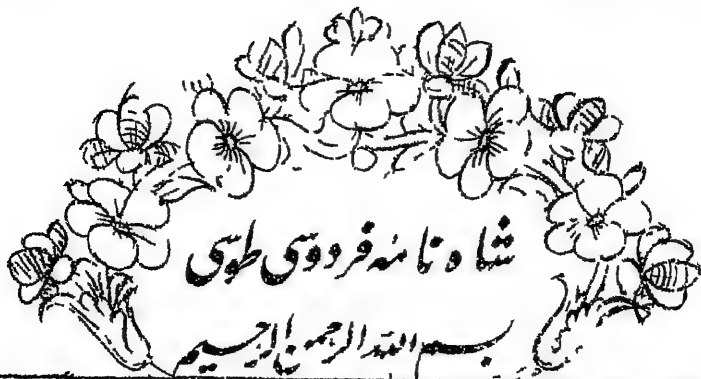 شاه نامه فردوسی طوسی
بسم الله الرحمن الرحیم